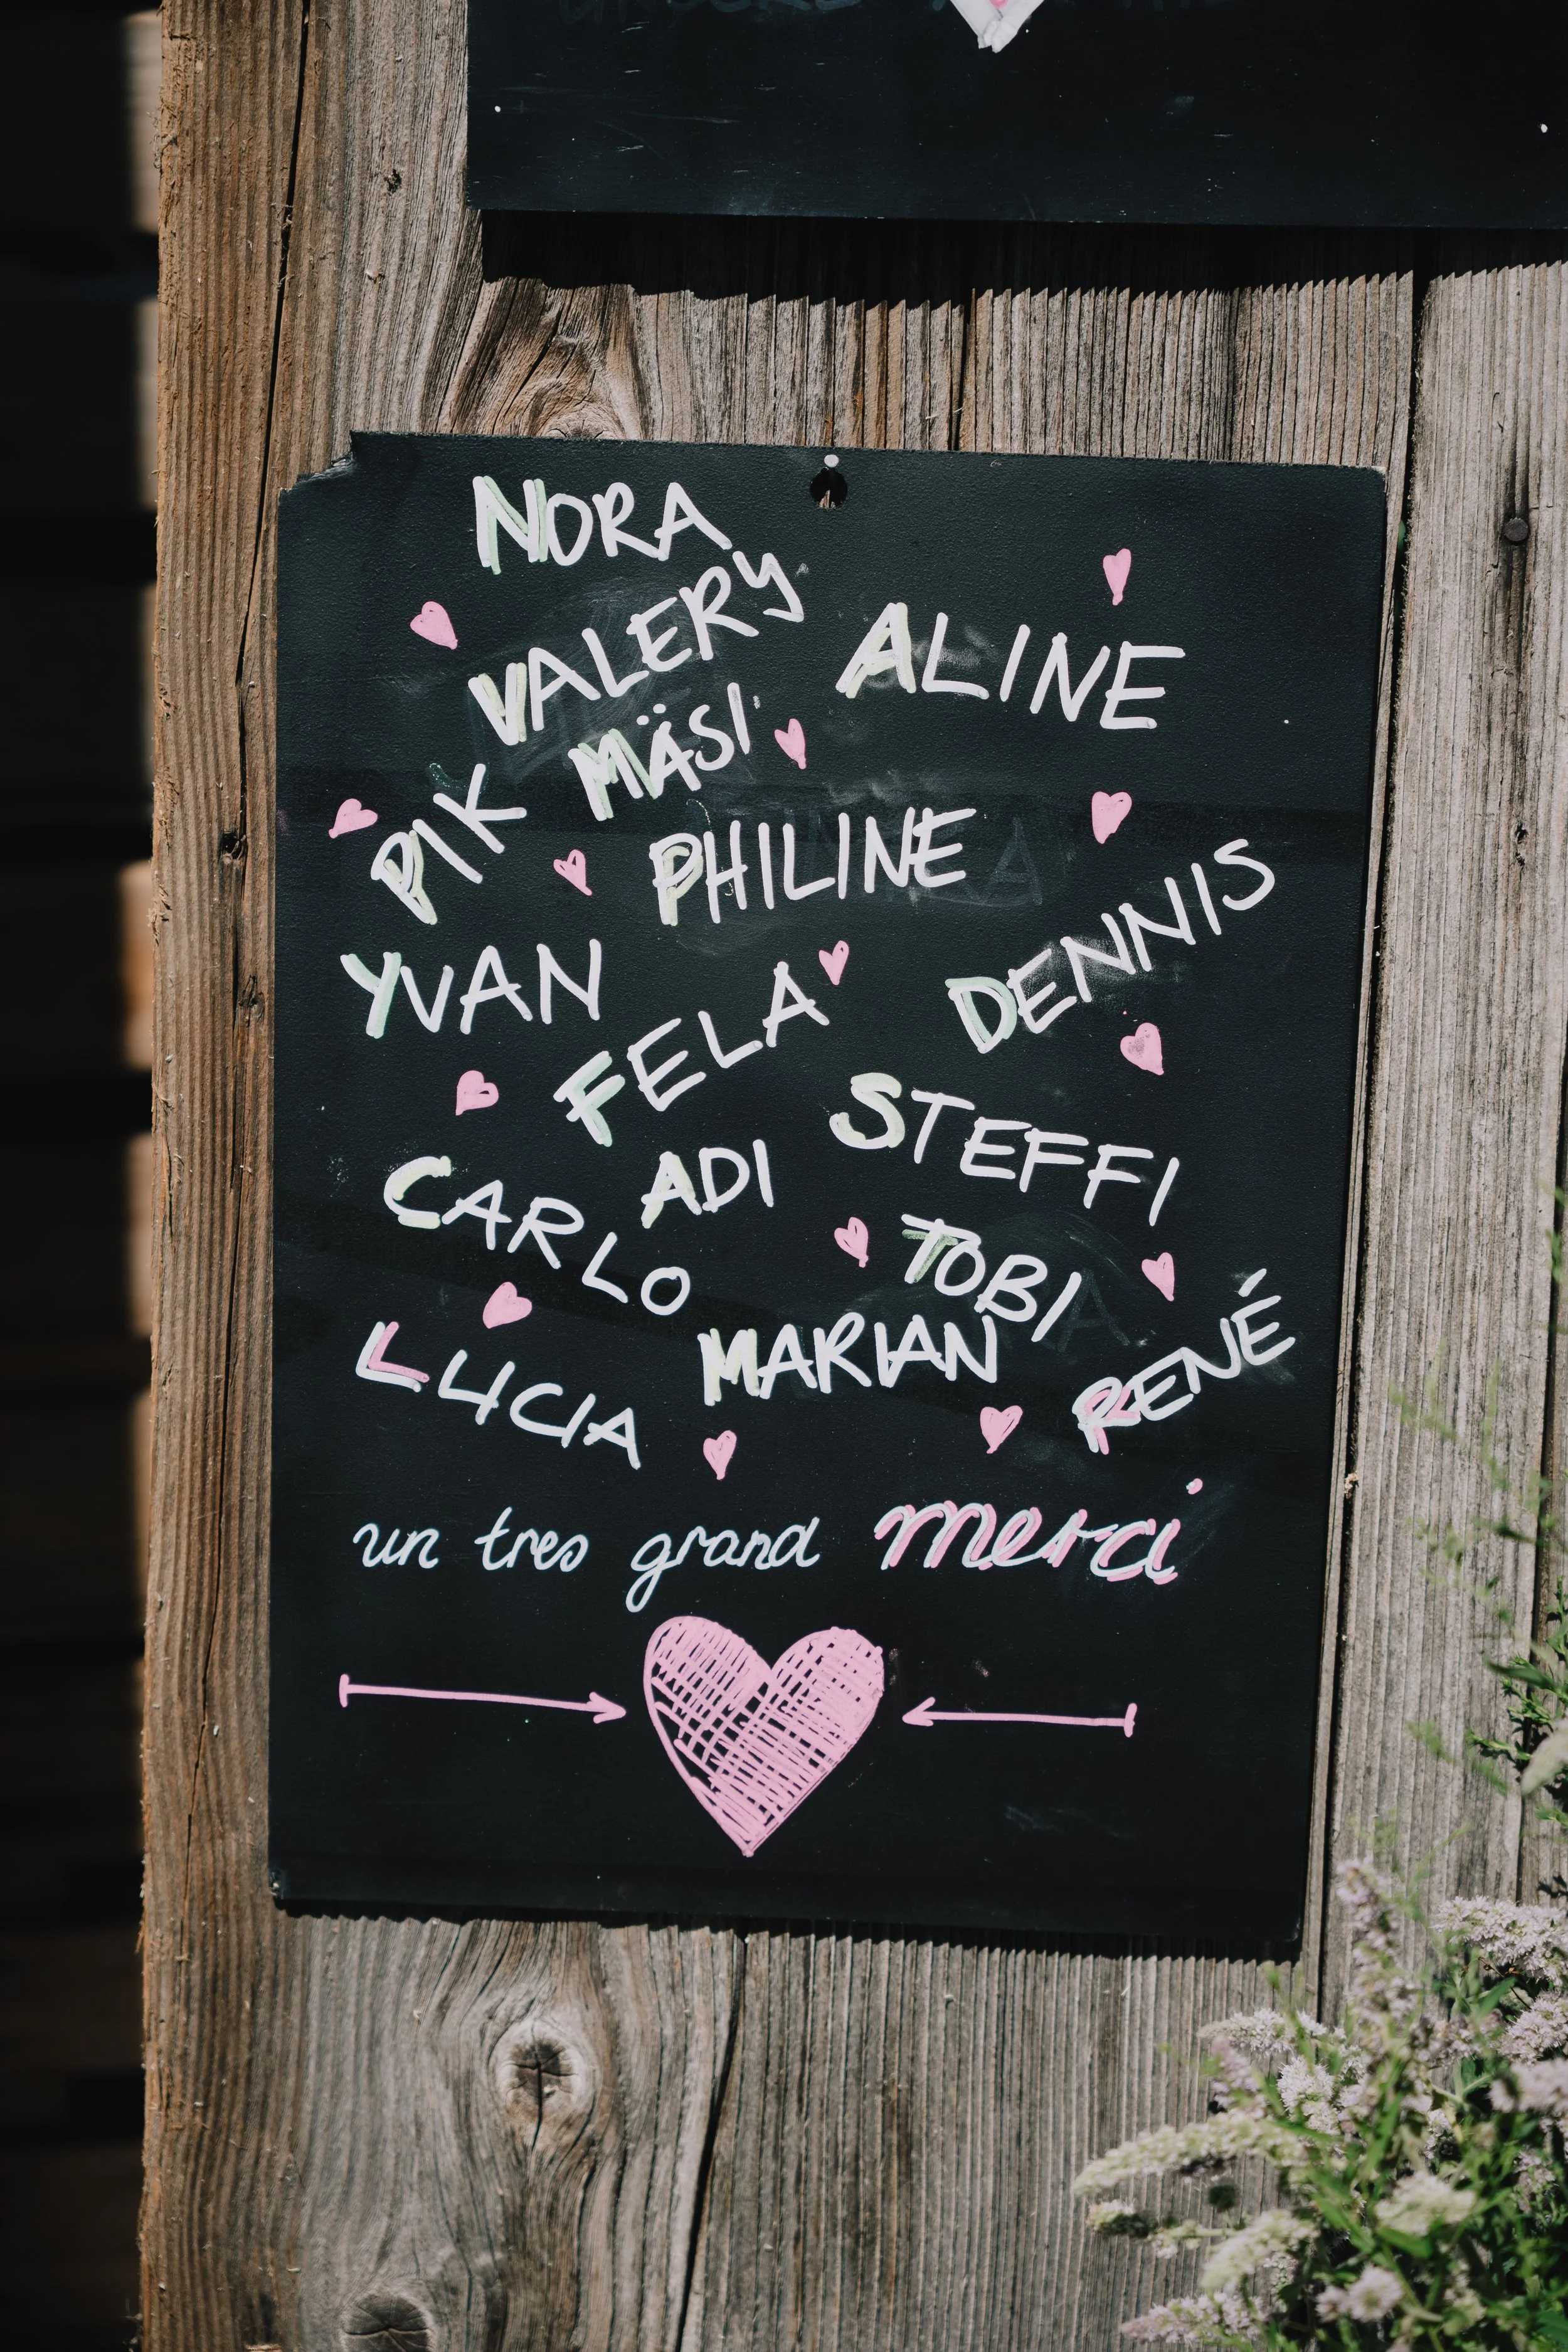 NORA
VALERY
ALINE
MÄSI
PIK
PHILINE
DENNIS
YVAN
FELA
STEFFI
ADI
CARLO
TOBI
MARIAN
RENÉ
LUCIA
un tres grand merci